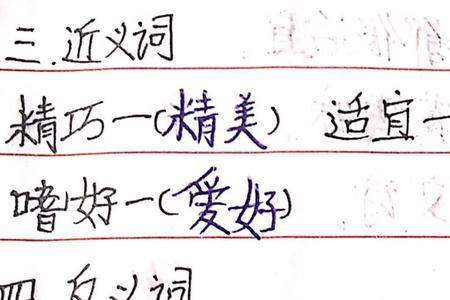 三.近义词
精巧—(精美) 适宜—
嗜好—(爱好)
四.反义词